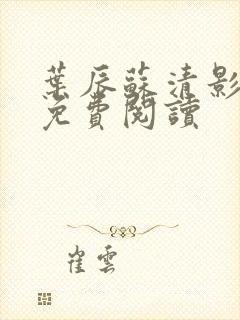 葉辰蘇清影
免費閱讀
崔雲